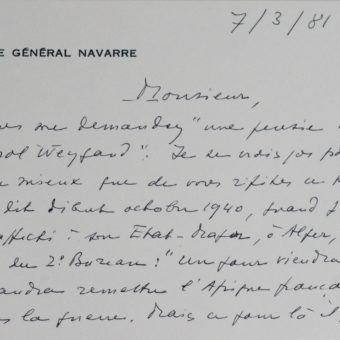 7/3/81
E GÉNÉRAL NAVARRE
Monsieur,
es me demandez "une pensée
ol Weygand". Je ne vois pas
mieux que de vous
dit début octobre 1940, quand
à son Etat-Major, à Alger,
du 2e Bureau: "Un jour viendra
remettre l'Afrique
s la guerre. Mais ce jour là il